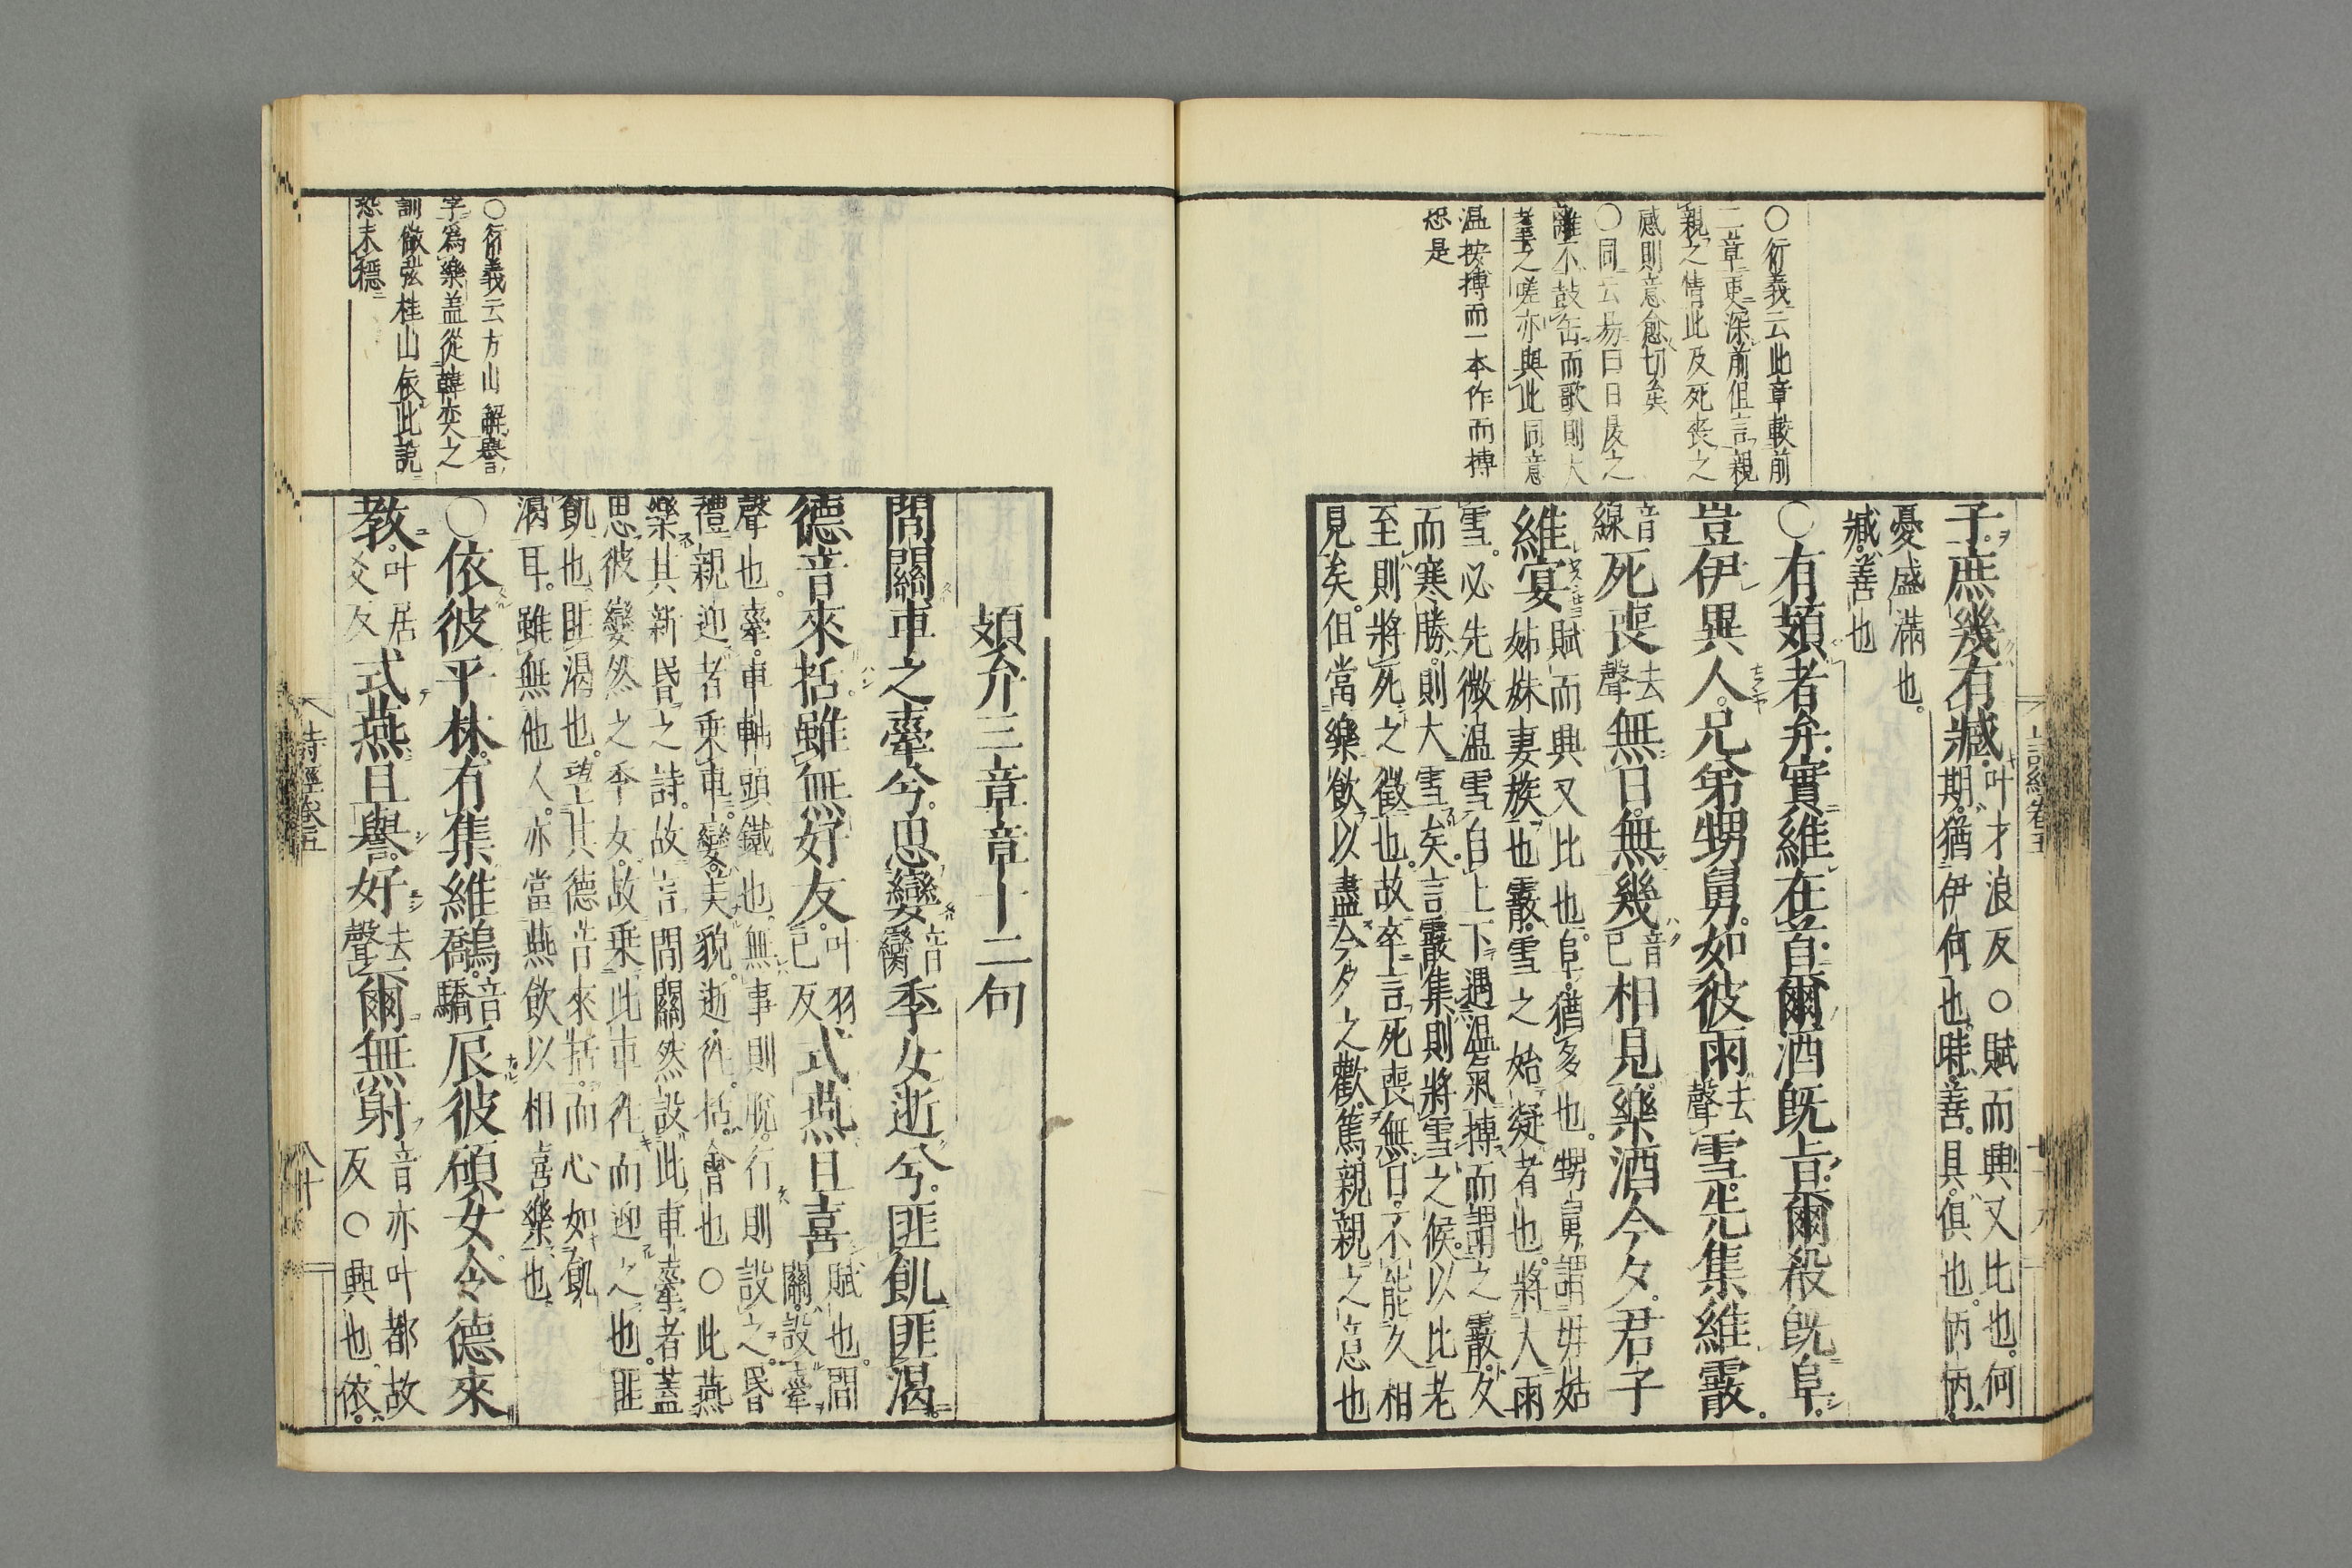 ○衍義云此章較前
二章更深前但言親
親之情此及死喪之
感則意愈切矣
○同云易曰日昃之
離不鼓缶而歌則大
耋之嗟亦與此同意
温按摶而一本作而摶
恐是
子庶幾有臧叶才浪反○賦而興又比也何
期猶伊何也時善具俱也怲怲
憂盛滿也
臧善也
○有頍者弁實維在首爾酒旣旨爾殽旣阜
豈伊異人兄弟甥舅如彼雨去聲雪先集維霰
音線死喪去聲無日無幾音已相見樂酒今夕君子
維宴賦而興又比也阜猶多也甥舅謂母姑
姊妹妻族也霰雪之始凝者也將大雨
雪必先微温雪自上下遇温氣摶而謂之霰久
而寒勝則大雪矣言霰集則將雪之候以比老
至則將死之徵也故卒言死喪無日不能久相
見矣但當樂飲以盡今夕之歡篤親親之意也
詩經卷五
頍弁三章章十二句
間關車之舝兮思孌音臠季女逝兮匪飢匪渴
德音來括雖無好友叶羽已反式燕且喜賦也間
關設舝
聲也舝車軸頭鐵也無事則脫行則設之昏
禮親迎者乘車孌美貌逝往括會也○此燕
樂其新昏之詩故言間關然設此車舝者蓋
思彼孌然之季女故乘此車往而迎之也匪
飢也匪渴也望其德音來括而心如飢
渴耳雖無他人亦當燕飲以相喜樂也
○依彼平林有集維鷮音驕辰彼碩女令德來
教叶居爻反式燕且譽好去聲爾無射音亦叶都故
反○興也依
○衍義云方山解譽
字爲樂蓋從韓奕之
訓徽弦桂山依此說
恐未穩
詩經卷五
八十